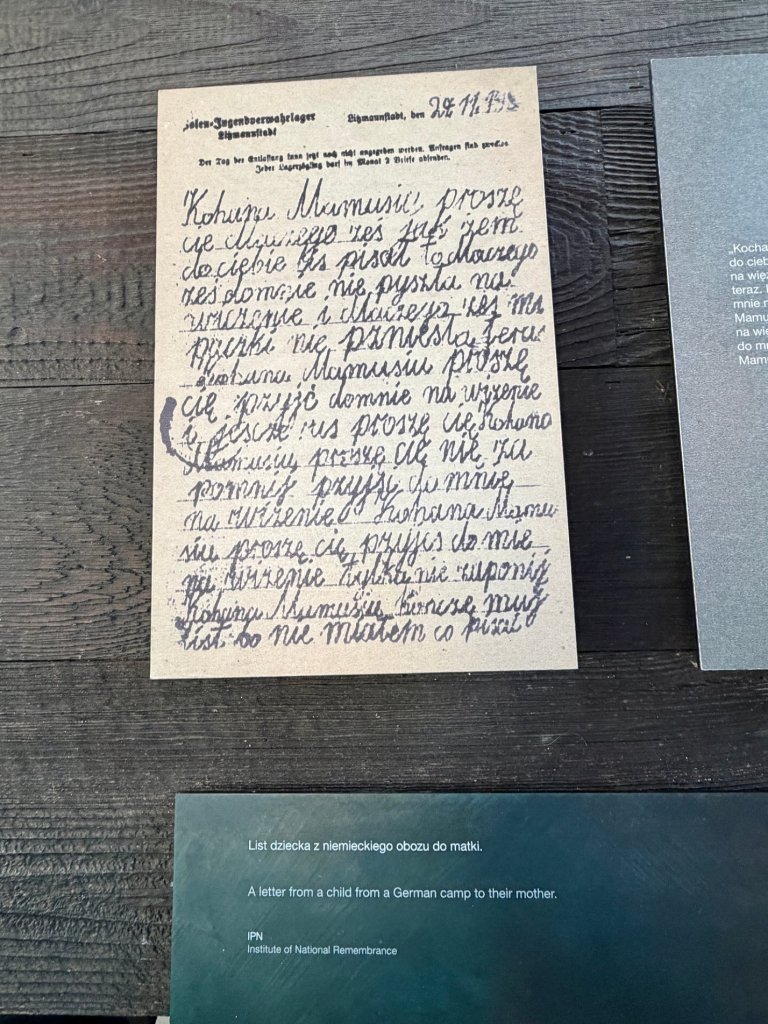 olen-Jugendverwahrlager
Litzmannstadt
Litzmannstadt, den 29 11. 1943
Der Tag der Entlassung kann jetzt noch nicht angegeben werden. Anfragen sind zwecklos
Jeder Lagerzögling darf im Monat 2 Briefe absenden.
Kohana Mamusiu proszę
cię dlaczego żeś jak żem
do ciebie pisał to dlaczego
żeś domnie nie pyszła na
wiczenie i dlaczego żeś mi
paczki nie pzniesła tera
Kohana Mamusiu proszę
cię pzyjć domnie na wizenie
i jescze ras proszę cię Kohana
Mamusiu proszę cię nie za
pomnij pzyjć do mnie
na wizenie Kohana Mamu
siu proszę cię pzyjć do mie
na wizenie tylko nie zaponij
Kohana Mamusiu kończę muj
list bo nie miałem co pisać
„Kocha
do cieb
na wię
teraz.
mnie
Mamu
na wię
do m
Mam
List dziecka z niemieckiego obozu do matki.
A letter from a child from a German camp to their mother.
IPN
Institute of National Remembrance